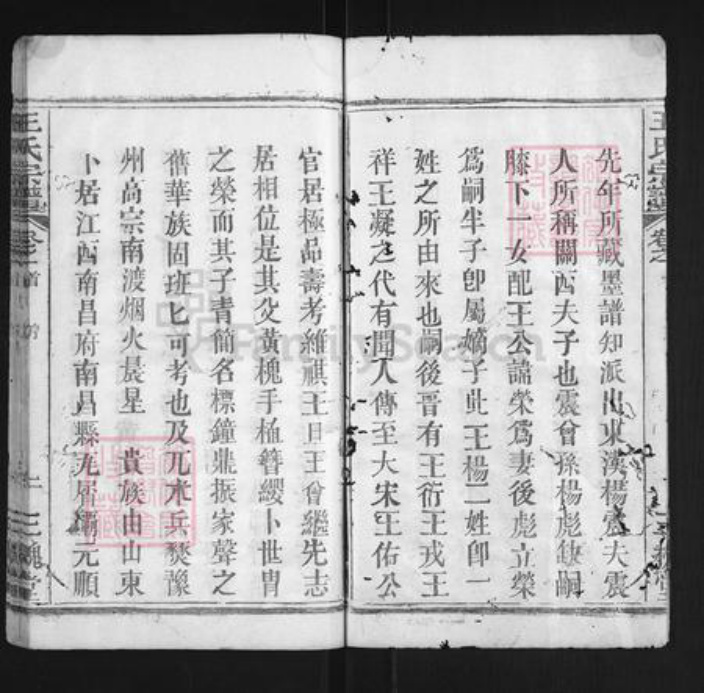 先年所藏墨譜知派出東漢楊震夫震
人所稱關西夫子也震曾孫楊彪缺嗣
膝下一女配王公諱榮爲妻後彪立榮
爲嗣半子卽屬嫡子此王楊二姓卽一
姓之所由來也嗣後晋有王衍王戎王
祥王凝之代有聞人傳至大宋王佑公
官居極品壽考維祺王旦王曾繼先志
居相位是其父黃槐手植簪纓卜世冑
之榮而其子青簡名標鐘鼎振家聲之
舊華族固班匕可考也及兀朮兵燹豫
州高宗南渡烟火晨星 貴族由山東
卜居江西南昌府南昌縣 元順
王氏宗譜
卷之首
三槐堂
王氏宗譜
卷之
FamilySearch